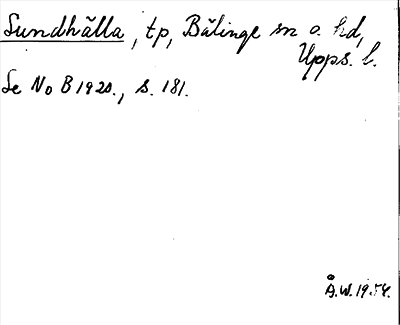 Sundhälla, tp, Bälinge sn o. hd,
Upps. l.
Se NoB 1920., s. 181.
Å.W. 1954.